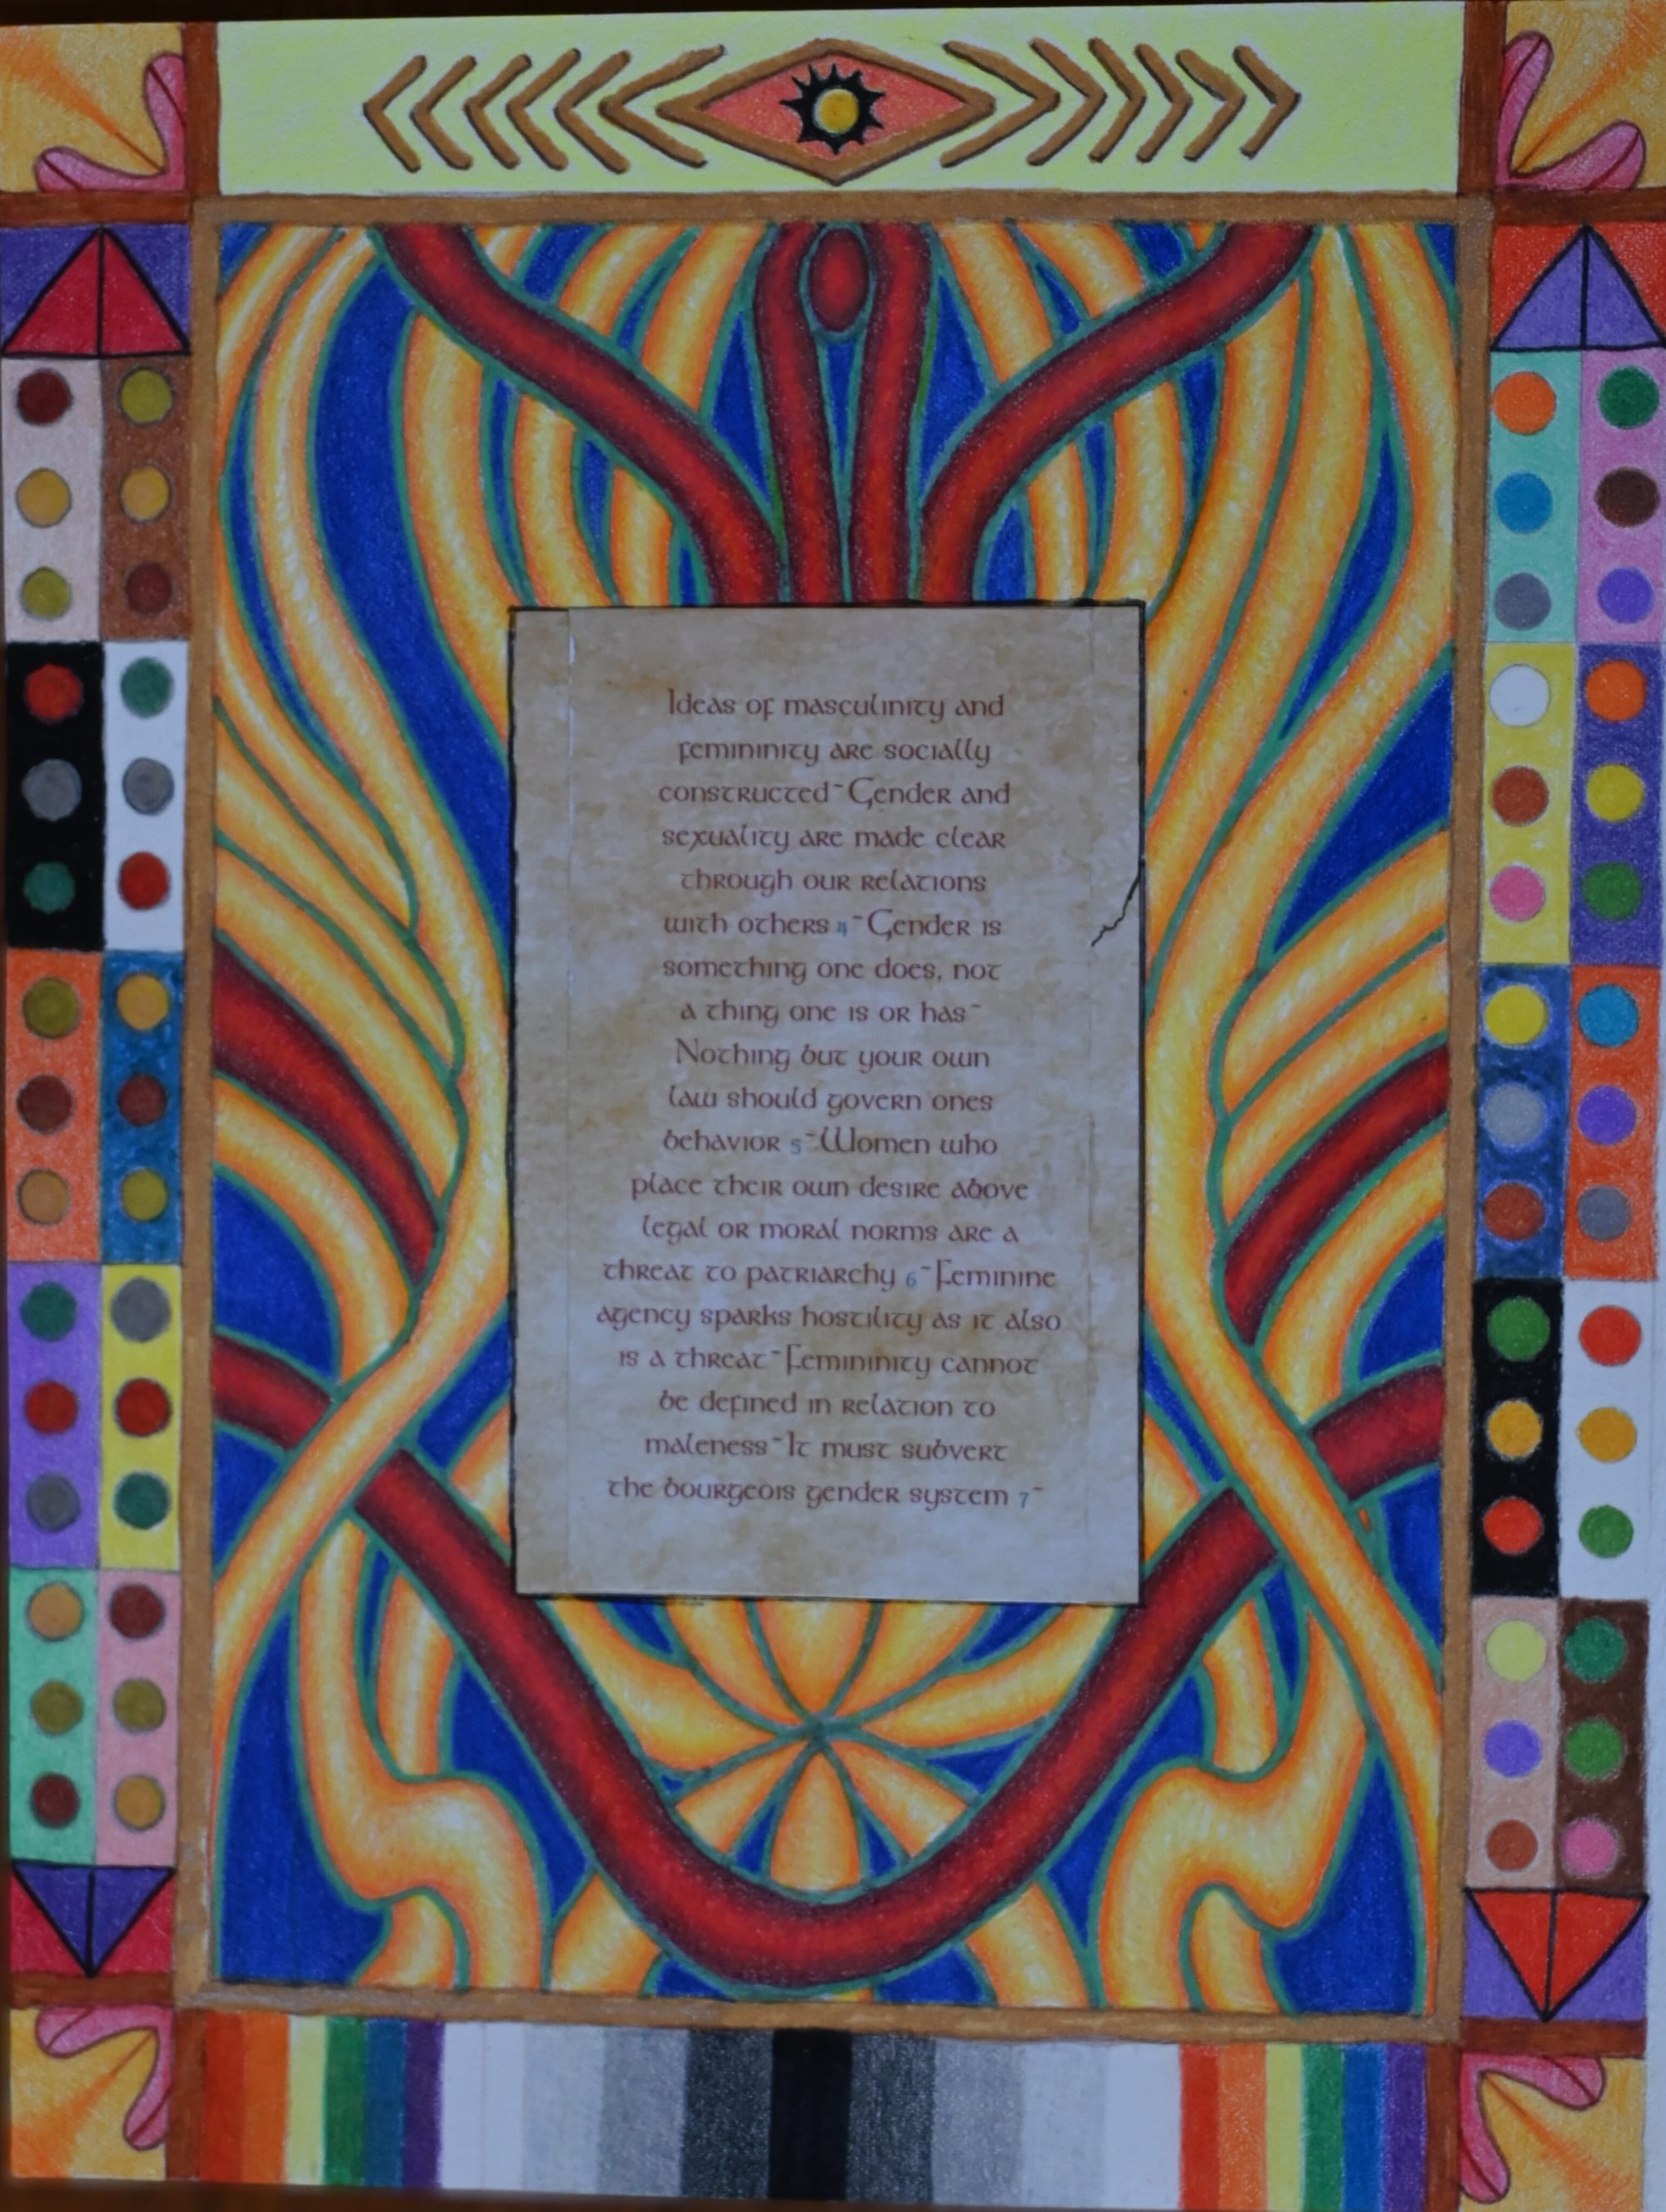 Ideas of masculinity and
femininity are socially
constructed~Gender and
sexuality are made clear
through our relations
with others 4~Gender is
something one does, not
a thing one is or has~
Nothing but your own
law should govern ones
behavior 5~Women who
place their own desire above
legal or moral norms are a
threat to patriarchy 6~Feminine
agency sparks hostility as it also
is a threat~Femininity cannot
be defined in relation to
maleness~It must subvert
the bourgeois gender system 7~